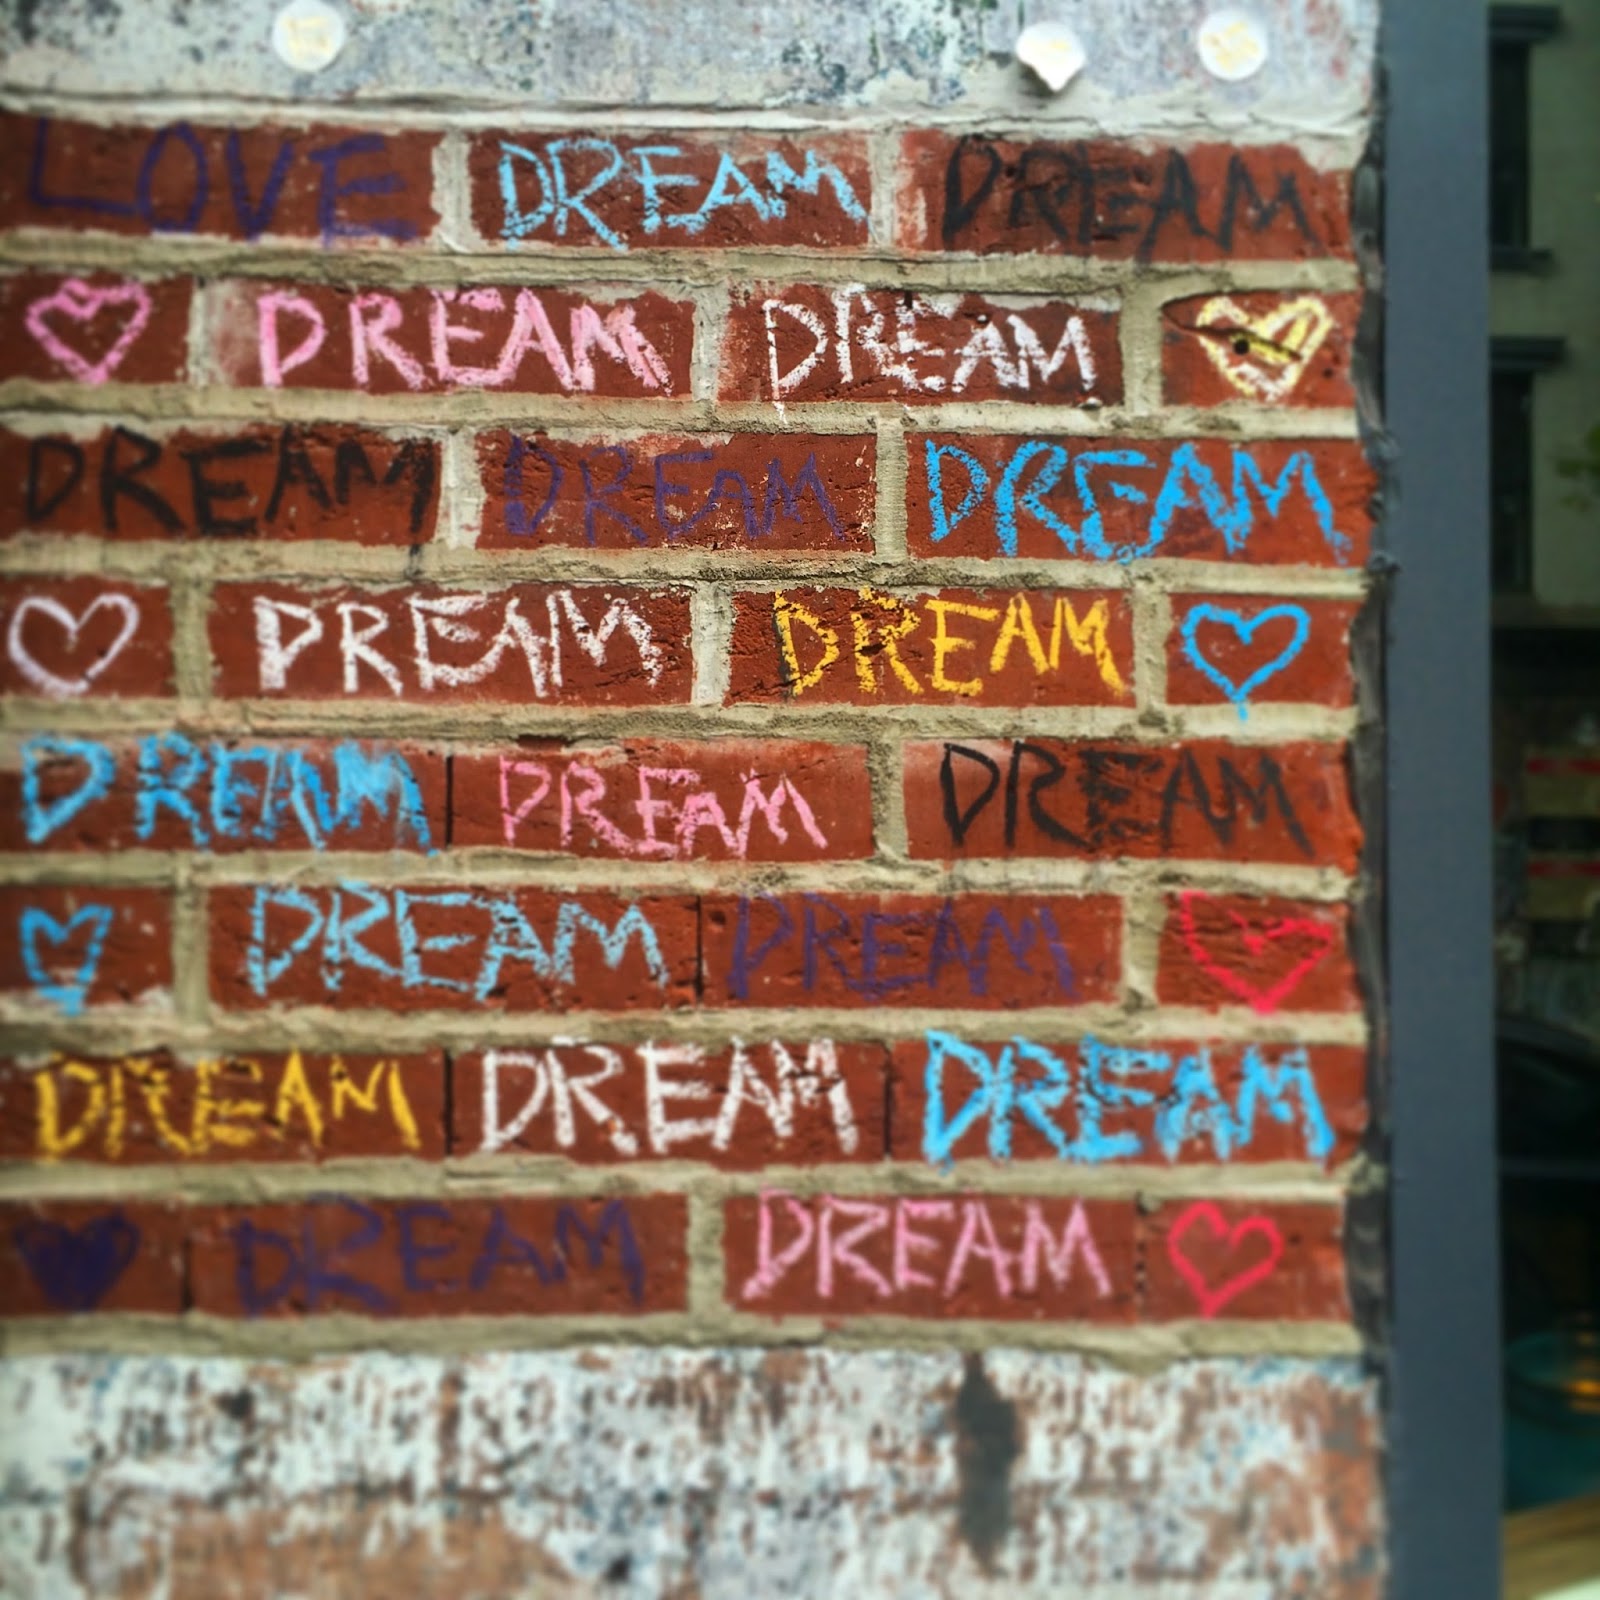 LOVE DREAM DREAM
DREAM DREAM
DREAM DREAM DREAM
DREAM DREAM
DREAM DREAM DREAM
DREAM DREAM
DREAM DREAM DREAM
DREAM DREAM